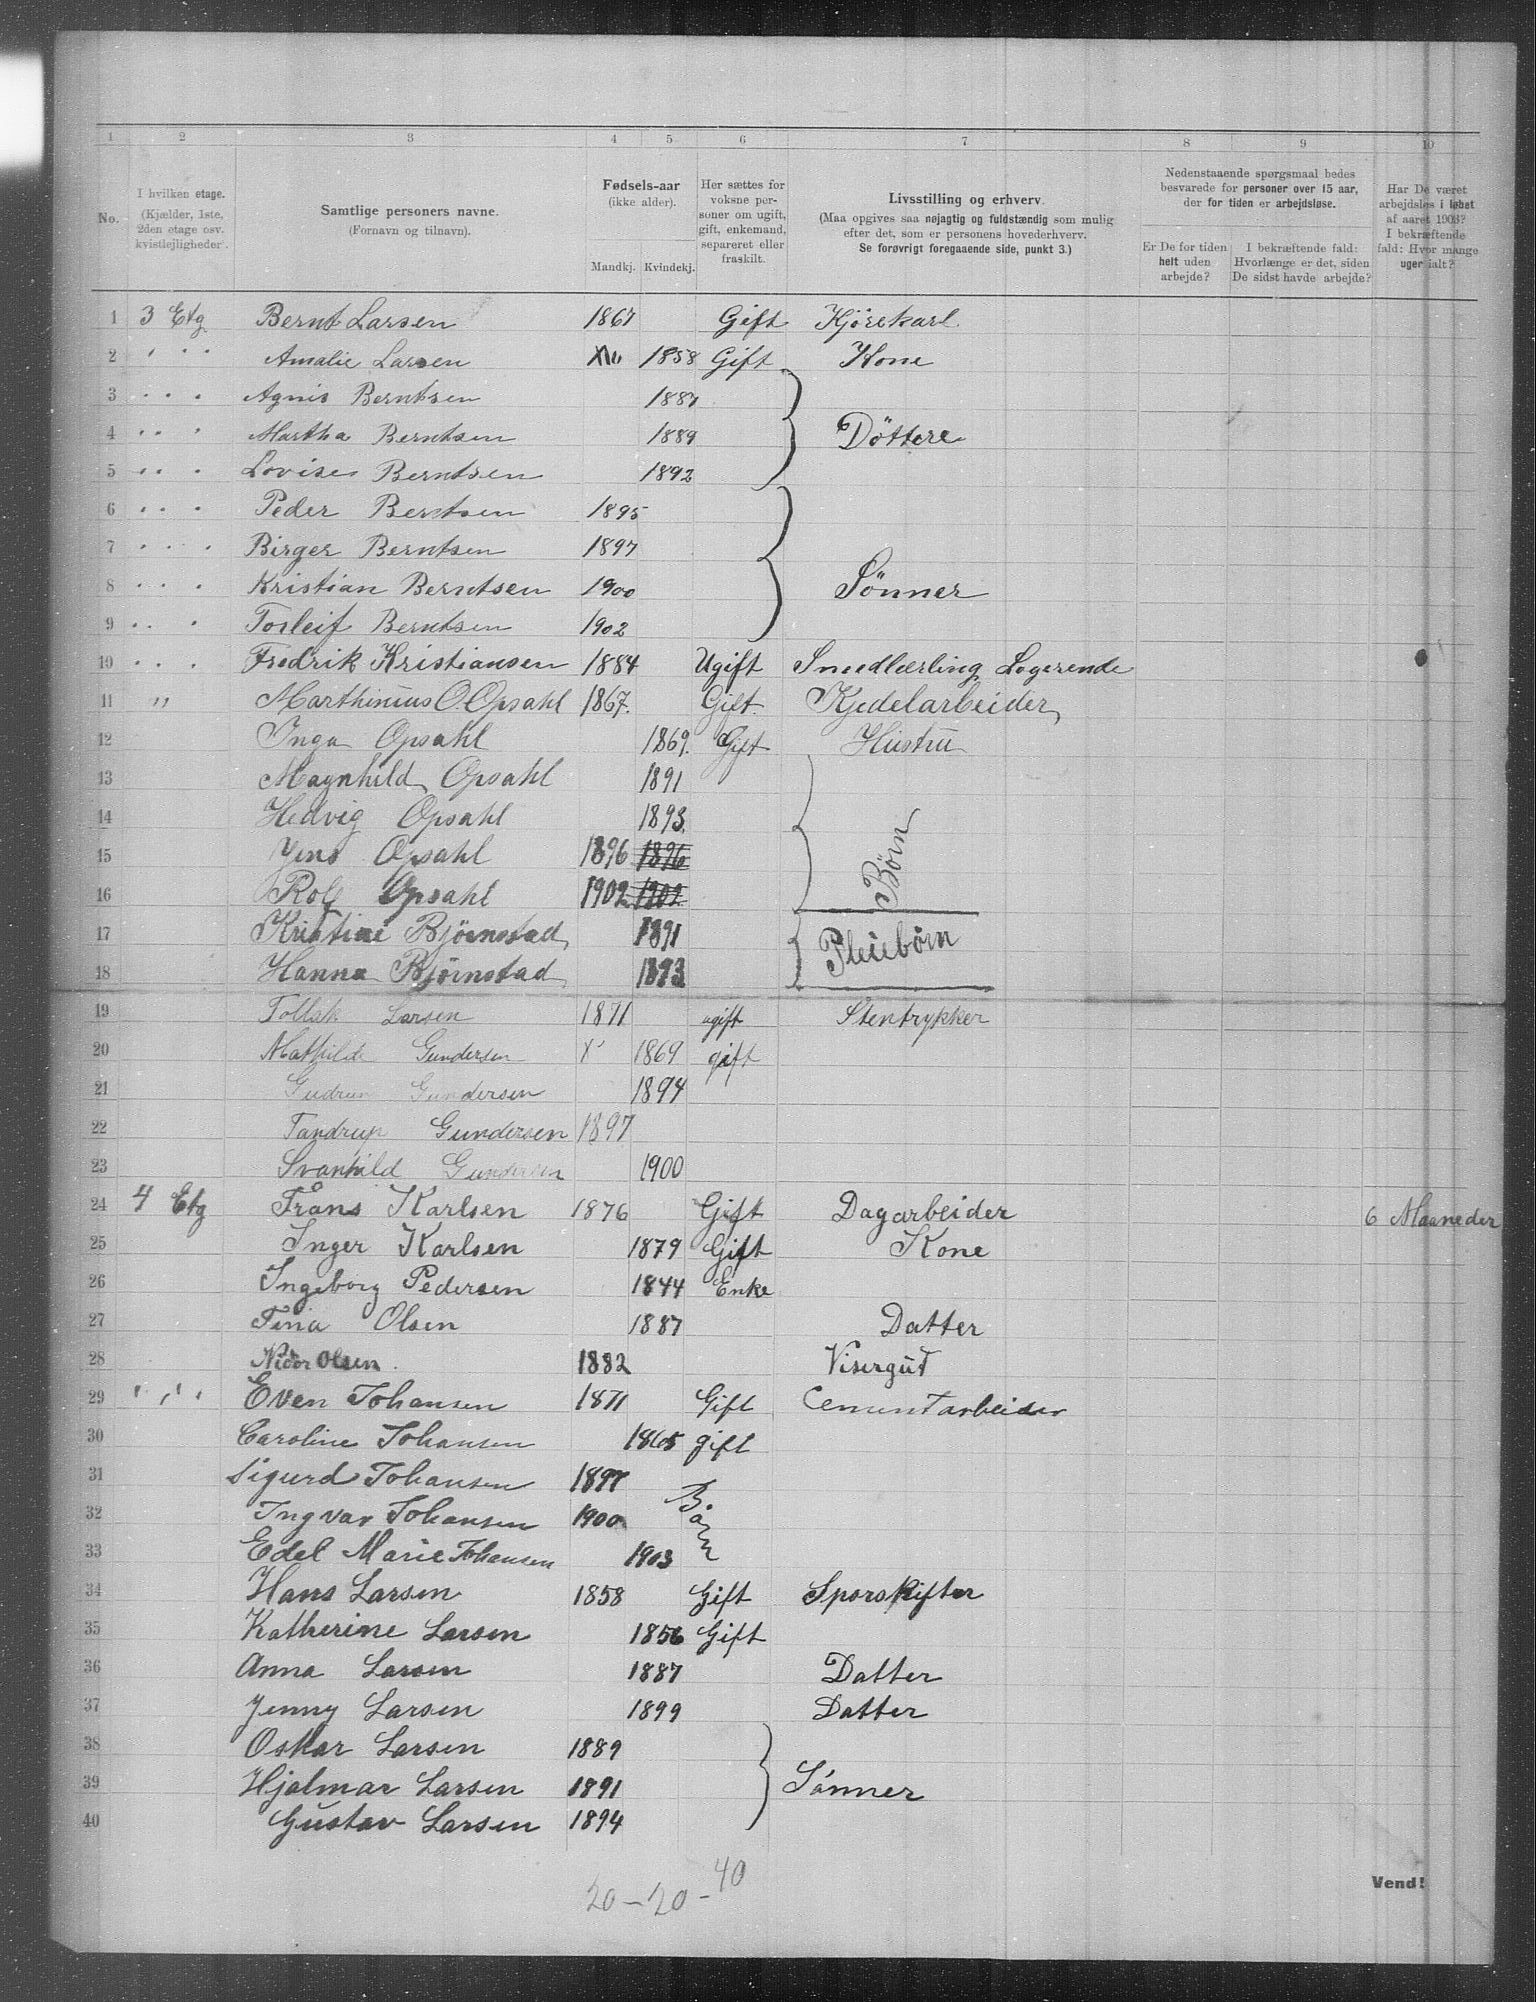 1 2 3 4 5 6 7 8 9 10
No.
I hvilken etage.
(Kjælder, 1ste,
2den etage osv.
kvistlejligheder.
Samtlige personers navne.
(Fornavn og tilnavn).
Fødsels-aar
(ikke alder).
Mandkj. Kvindekj.
Her sættes for
voksne per-
soner om ugift,
gift, enkemand,
separeret eller
fraskilt.
Livsstilling og erhverv.
(Maa opgives saa nøjagtig og fuldstændig som mulig
efter det, som er personens hovederhverv.
Se forøvrigt foregaaende side, punkt 3.)
Nedenstaaende spørgsmaal bedes
besvarede for personer over 15 aar,
der for tiden er arbejdsløse.
Er De for tiden
helt uden
arbejde?
I bekræftende fald:
Hvorlænge er det, siden
De sidst havde arbejde?
Har De været
arbejdsløs i løbet
af aaret 1903?
I bekræftende
fald: Hvor mange
uger ialt?
1 3 Etg Bernt Larsen 1867 Gift Kjørekarl
2 " " " Amalie Larsen 1858 Gift Kone
3 " " " Agnis Berntsen 1887
4 " " " Martha Berntsen 1889 Döttere
5 " " " Lovise Berntsen 1892
6 " " " Peder Berntsen 1895
7 " " " Birger Berntsen 1897
8 " " " Kristian Berntsen 1900 Sønner
9 " " " Torleif Berntsen 1902
10 " " " Fredrik Kristiansen 1884 Ugift Smedlærling Logerende
11 " Marthinius O Opsahl 1867. Gift. Kjedelarbeider,
12 Inga Opsahl 1869. Gift Hustru
13 Magnhild Opsahl 1891
14 Hedvig Opsahl 1893. Børn
15 Jens Opsahl 1896 1896
16 Rolf Opsahl 1902 1902
17 Kristine Bjørnstad 1891 Pleiebørn
18 Hanna Bjørnstad 1893
19 Tollak Larsen 1871 ugift Stentrykker
20 Mathilde Gundersen X 1869 gift
21 Gudrun Gundersen 1894
22 Tandrup Gundersen 1897
23 Svanhild Gundersen 1900
24 4 Etg Frans Karlsen 1876 Gift Dagarbeider 6 Maaneder
25 Inger Karlsen 1879 Gift Kone
26 Ingeborg Pedersen 1844 Enke
27 Tina Olsen 1887 Datter
28 Olsen 1882 Visergut
29 " " " Even Johansen 1871 Gift Cementarbeider
30 Caroline Johansen 1865 gift
31 Sigurd Johansen 1897
32 Ingvar Johansen 1900 Børn
33 Edel Marie Johansen 1903
34 Hans Larsen 1858 Gift Sporskifter
35 Katherine Larsen 1856 Gift
36 Anna Larsen 1887 Datter
37 Jenny Larsen 1899 Datter
38 Oskar Larsen 1889
39 Hjalmar Larsen 1891 Sønner
40 Gustav Larsen 1894
20 - 20 - 40
Vend!